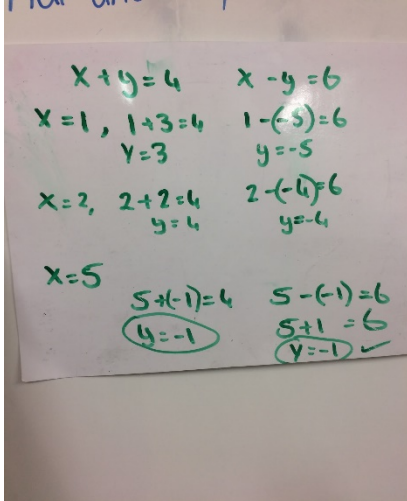 x + y = 4    x - y = 6
x = 1, 1 + 3 = 4    1 - (-5) = 6
y = 3    y = -5
x = 2, 2 + 2 = 4    2 - (-4) = 6
y = 4    y = -4
x = 5
5 + (-1) = 4    5 - (-1) = 6
5 + 1 = 6
y = -1    y = -1 ✓